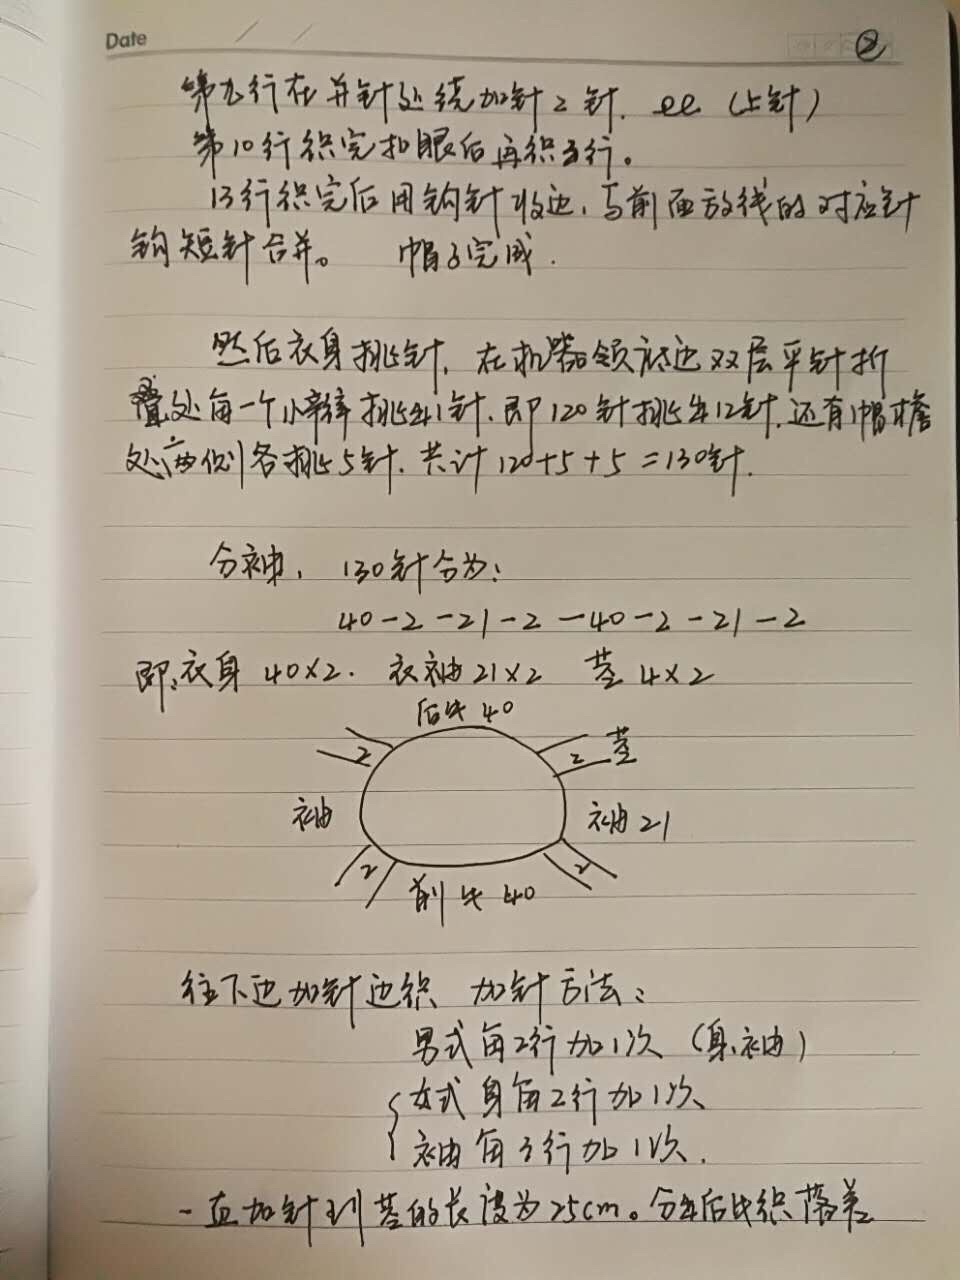 Date
②
第九行在并针处绕加针2针. ee (上针)
第10行织完扣眼后再织3行。
13行织完后用钩针收边, 与前面放线的对应针
钩短针合并。 帽子完成.
然后衣身挑针, 在机器领底边双层平针折
叠处每一个小辫挑出1针. 即120针挑出12针. 还有帽檐
处两侧各挑5针. 共计120+5+5=130针.
分袖, 130针分为:
40-2-21-2-40-2-21-2
即:衣身40×2. 衣袖21×2 茎4×2
后片40
2
2
茎
袖
袖21
2
2
前片40
往下边加针边织 加针方法:
男式每2行加1次 (身、袖)
女式身每2行加1次
袖每3行加1次.
一直加针到茎的长度为25cm。分出后片织落差